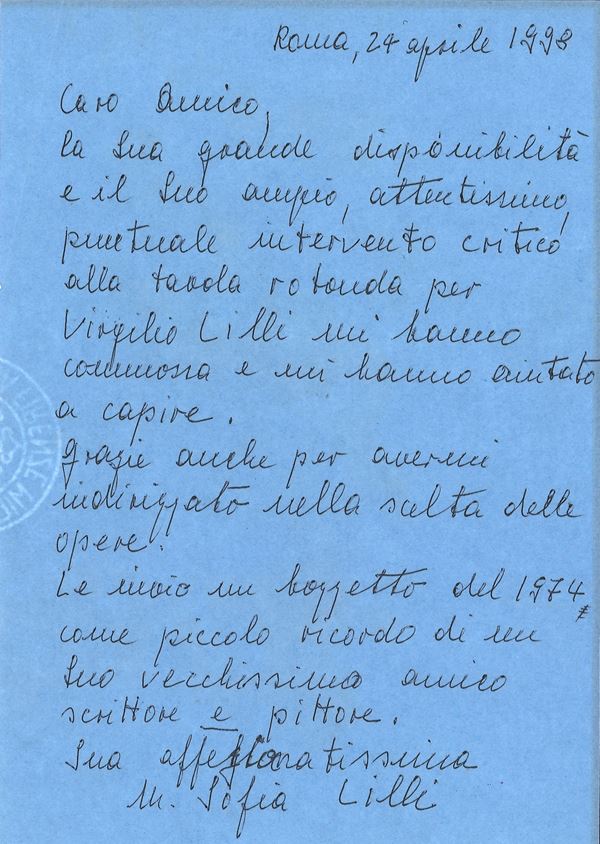 Roma, 24 aprile 1998
Caro Amico,
la Sua grande disponibilità
e il Suo ampio, attentissimo,
puntuale intervento critico
alla tavola rotonda per
Virgilio Lilli mi hanno
commossa e mi hanno aiutato
a capire.
Grazie anche per avermi
indirizzato nella scelta delle
opere.
Le invio un bozzetto del 1974*
come piccolo ricordo di un
Suo vecchissimo amico
scrittore e pittore.
Sua affezionatissima
M. Sofia Lilli